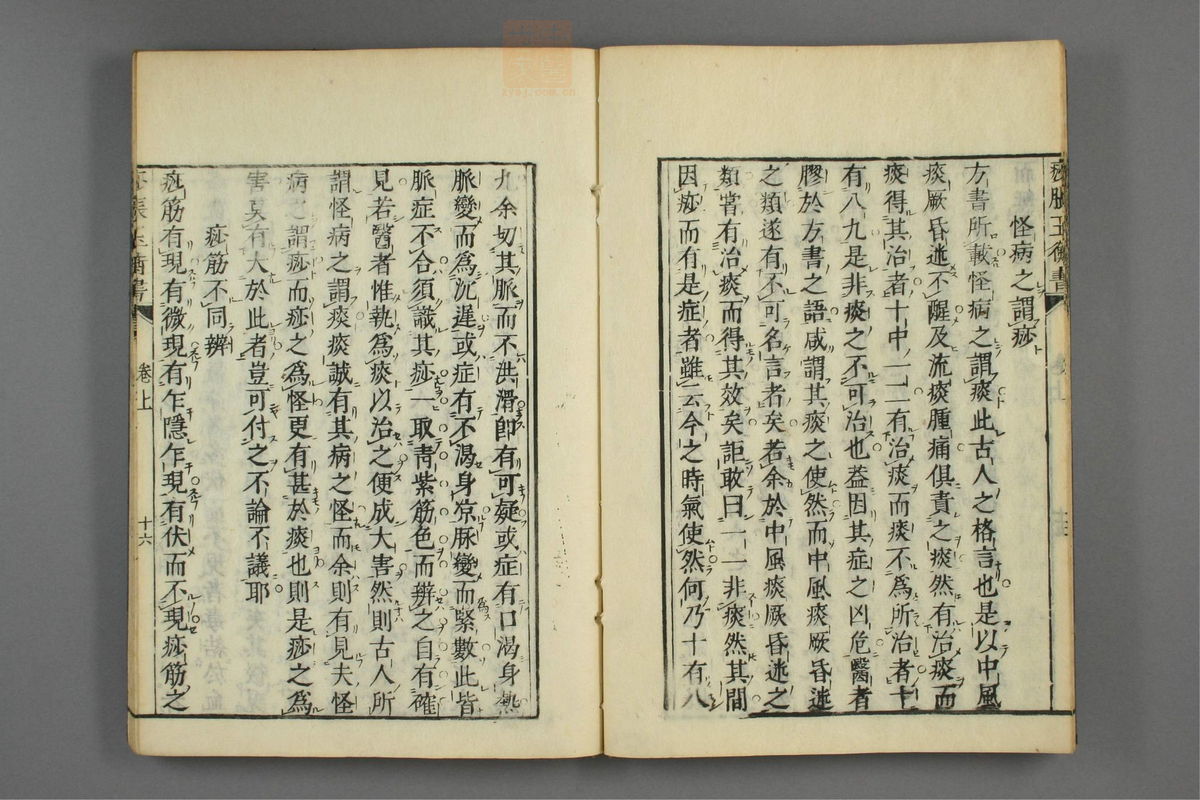 痧脹玉衡書
怪病之謂痧
方書所載怪病之謂痰此古人之格言也是以中風
痰厥昏迷不醒及流痰腫痛俱責之痰然有治痰而
痰得其治者十中一二有治痰而痰不為所治者十
有八九是非痰之不可治也益因其症之凶危醫者
膠於方書之語咸謂其痰之使然而中風痰厥昏迷
之類遂有不可名言者矣若余於中風痰厥昏迷之
類嘗有治痰而得其效矣詎敢曰一一非痰然其間
因痧而有是症者雖云今之時氣使然何乃十有八
九余切其脈而不洪滑卽有可疑或症有口渴身熱
脈變而為沉遲或症有不渴身凉脈變而緊數此皆
脈症不合須識其痧一取青紫筋色而辨之自有確
見若醫者惟執為痰以治之便成大害然則古人所
謂怪病之謂痰痰誠有其病之怪而余則有見夫怪
病之謂痧而痧之為怪更有甚於痰也則是痧之為
害莫有大於此者豈可付之不論不議耶
痧筋不同辨
痧筋有現有微現有乍隱乍現有伏而不現痧筋之
痧脹玉衡書
卷上
十六